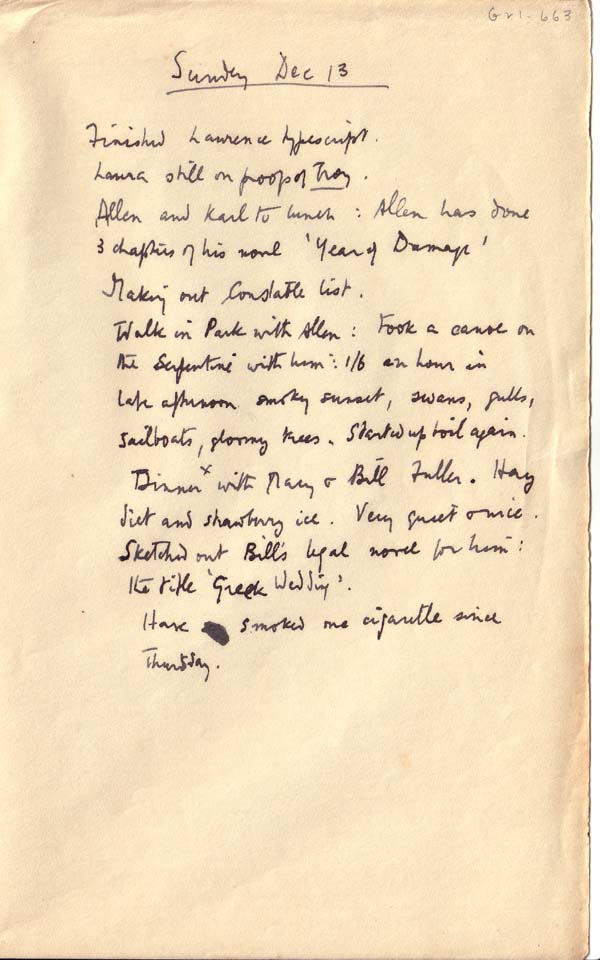 GRI-663
Sunday Dec 13
Finished Lawrence typescript.
Laura still on proofs of Troy.
Allen and Karl to lunch : Allen has done
3 chapters of his novel 'Year of Damage'
Making out Constable list.
Walk in Park with Allen : Took a canoe on
the Serpentine with him : 1/6 an hour in
late afternoon smoky sunset, swans, gulls,
sailboats, gloomy trees. Started up boil again.
Dinner x with Mary & Bill Fuller. Hay
diet and strawberry ice. Very quiet & nice.
Sketched out Bill's legal novel for him :
the title 'Greek Wedding'.
Have smoked one cigarette since
Thursday.